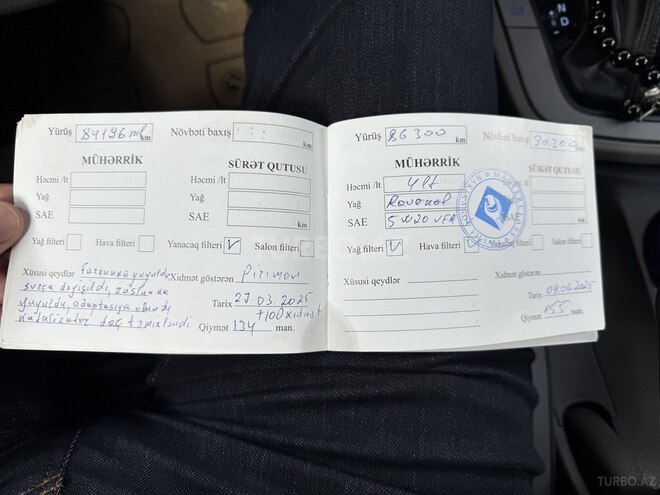 Yürüş 84196 ml km Növbəti baxış km
MÜHƏRRİK SÜRƏT QUTUSU
Həcmi /lt
Yağ
SAE km
Yağ filteri Hava filteri Yanacaq filteri Salon filteri
Xüsusi qeydlər Farsunka yuyuldu Xidmət göstərən Piriman
sveça dəyişildi, zaslunka
yuyuldu, adaptasiya olundu Tarix 27.03.2025
katalizator təmizləndi +100 xidmət
Qiymət 134 man.
Yürüş 86300 km Növbəti baxış km
MÜHƏRRİK SÜRƏT QUTUSU
Həcmi /lt 4 lt
Yağ Ravenol
SAE 5W20 km
Yağ filteri Hava filteri Yanacaq filteri Salon filteri
Xüsusi qeydlər Xidmət göstərən
Tarix 09.06.2025
Qiymət 155 man.
N
D
TURBO.AZ